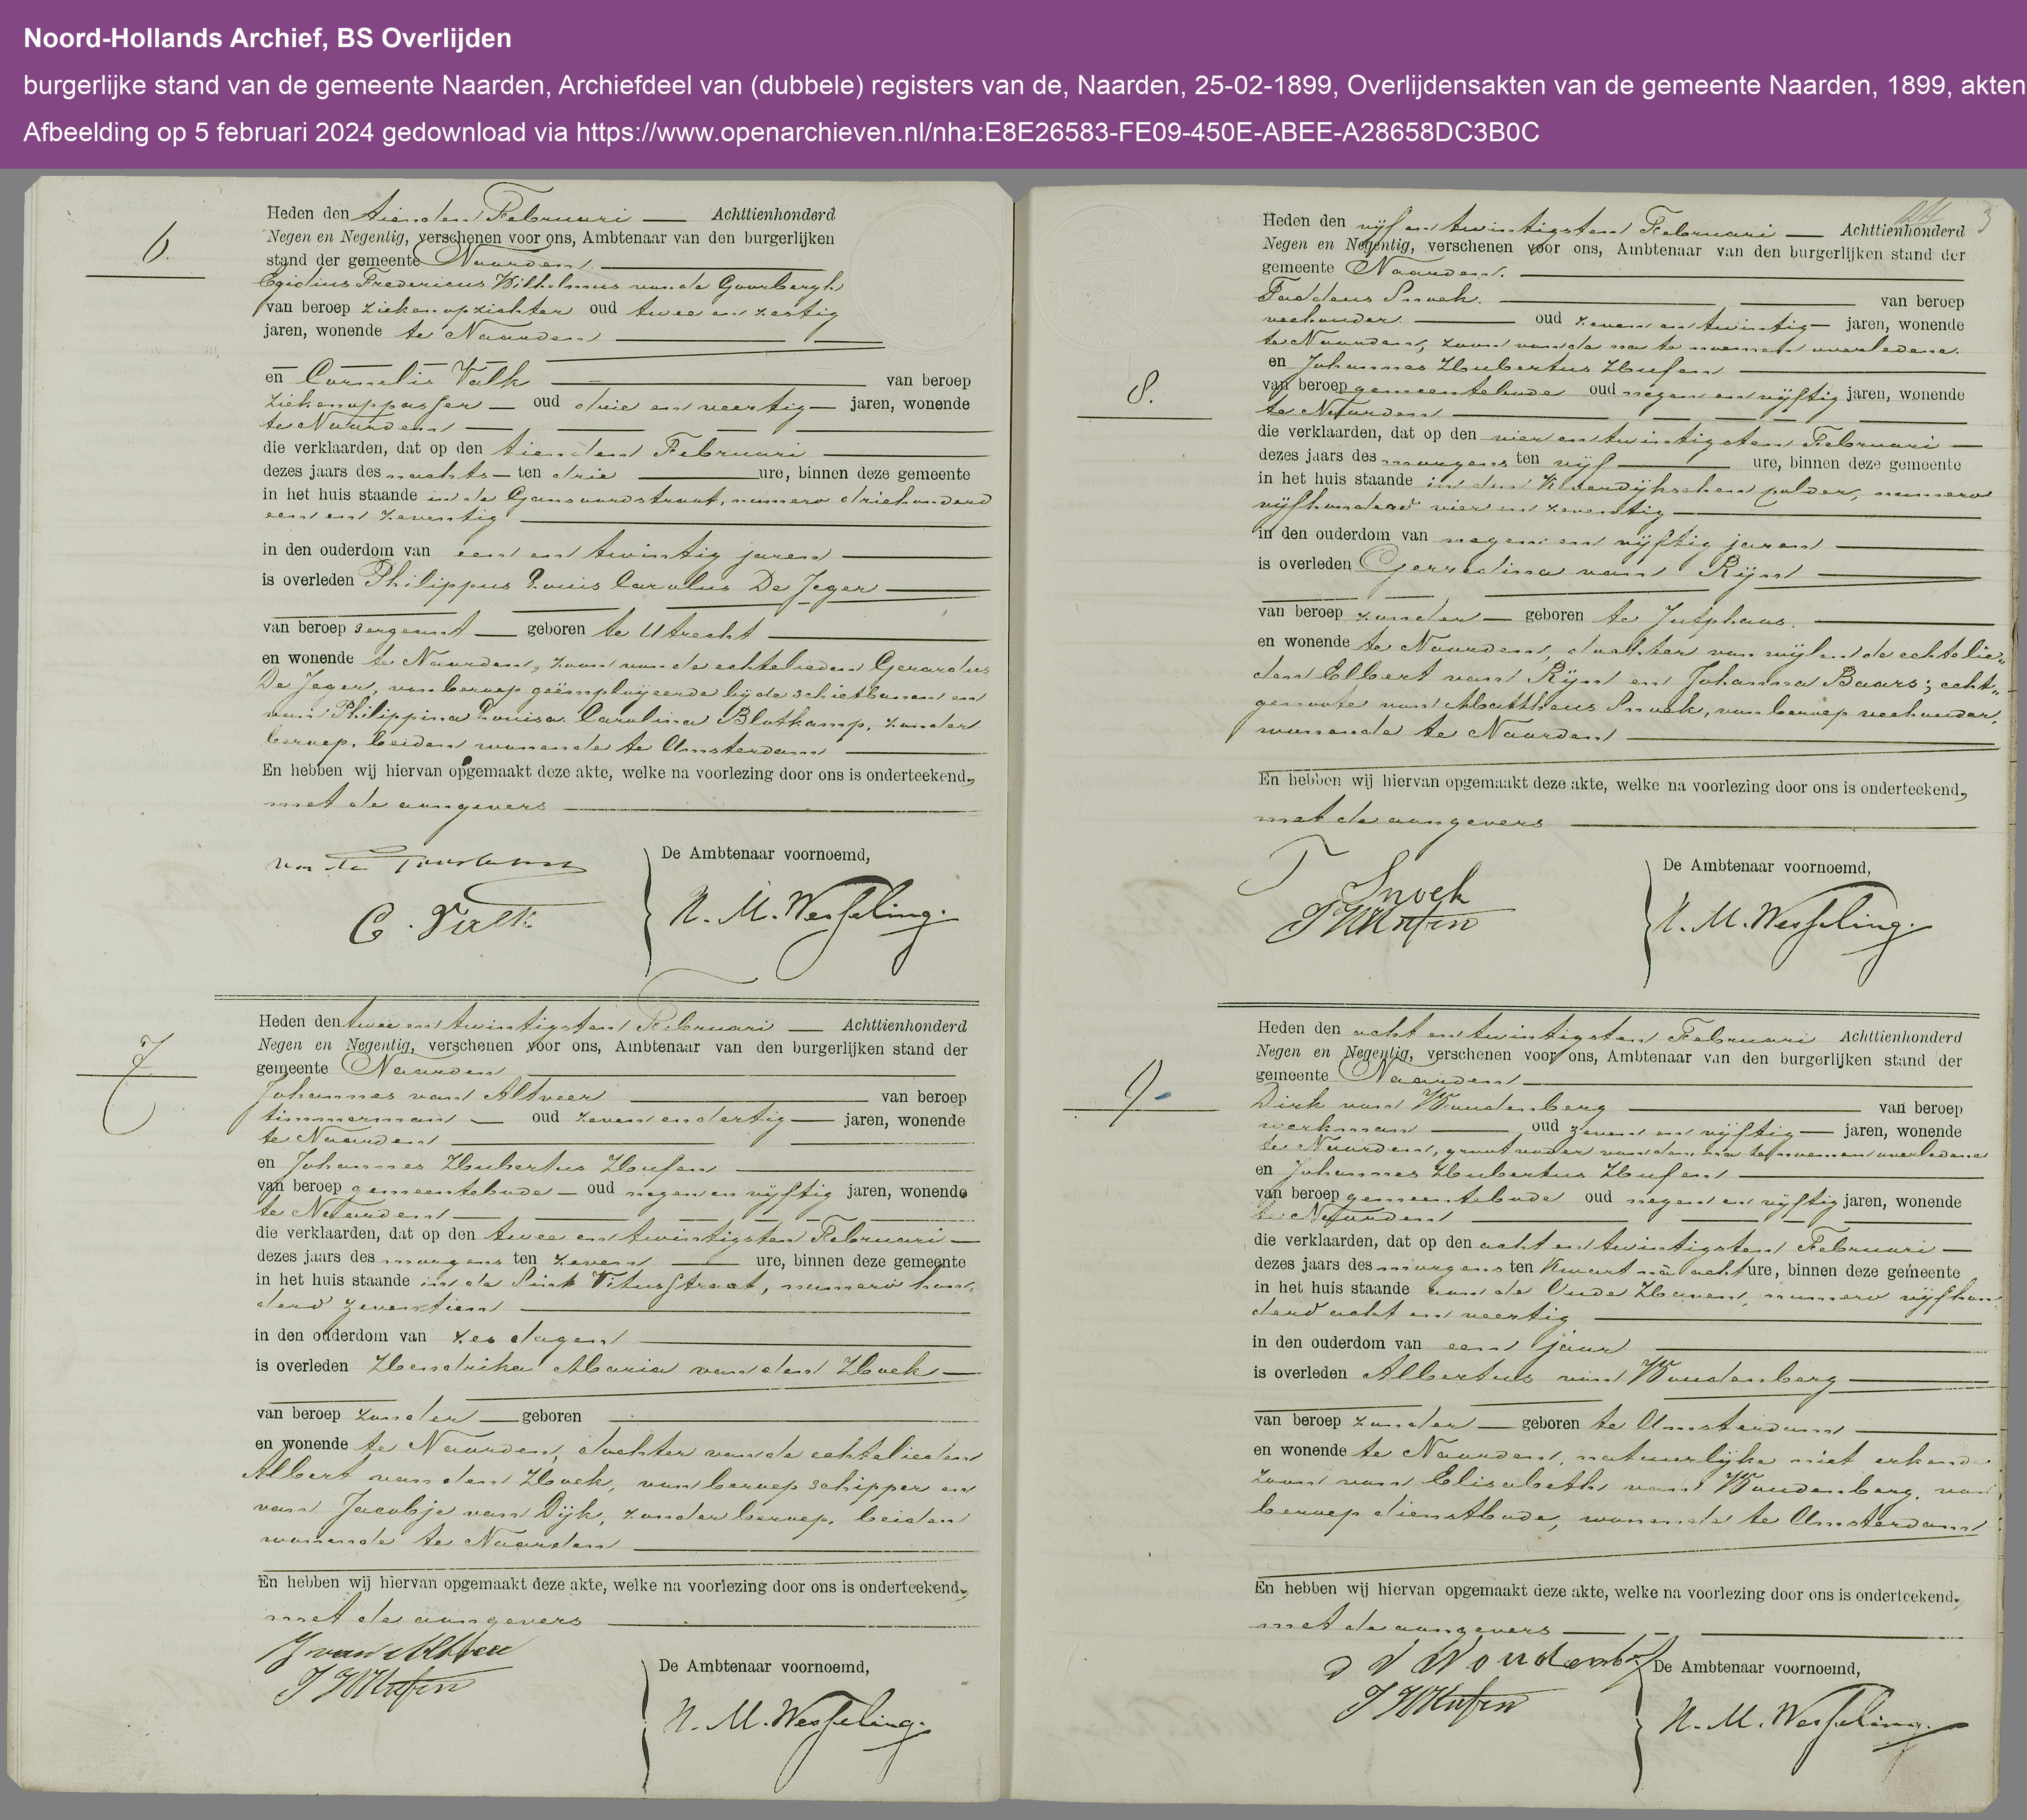 Noord-Hollands Archief, BS Overlijden
burgerlijke stand van de gemeente Naarden, Archiefdeel van (dubbele) registers van de, Naarden, 25-02-1899, Overlijdensakten van de gemeente Naarden, 1899, akten
Afbeelding op 5 februari 2024 gedownload via https://www.openarchieven.nl/nha:E8E26583-FE09-450E-ABEE-A28658DC3B0C
6.
Heden den tienden Februari Achttienhonderd
Negen en Negentig, verschenen voor ons, Ambtenaar van den burgerlijken
stand der gemeente Naarden.
Egidius Fredericus Wilhelmus van de Goorbergh
van beroep ziekenopzichter oud twee en zestig
jaren, wonende te Naarden
en Cornelis Valk van beroep
ziekenoppasser oud drie en veertig jaren, wonende
te Naarden
die verklaarden, dat op den tienden Februari
dezes jaars des nachts ten drie ure, binnen deze gemeente
in het huis staande in de Gansoordstraat, numero driehonderd
een en zeventig
in den ouderdom van een en twintig jaren
is overleden Philippus Louis Carolus De Jeger
van beroep sergeant geboren te Utrecht
en wonende te Naarden, zoon van de echtelieden Gerardus
De Jeger, van beroep geëmployeerde bij de schietbanen en
van Philippina Louisa Carolina Blotkamp, zonder
beroep, beiden wonende te Amsterdam
En hebben wij hiervan opgemaakt deze akte, welke na voorlezing door ons is onderteekend,
met de aangevers
De Ambtenaar voornoemd,
C. Valk
N. M. Wesseling.
7
Heden den twee en twintigsten Februari Achttienhonderd
Negen en Negentig, verschenen voor ons, Ambtenaar van den burgerlijken stand der
gemeente Naarden
Johannes van Altveer van beroep
timmerman oud zeven en dertig jaren, wonende
te Naarden
en Johannes Hubertus Hufen
van beroep gemeentebode oud negen en vijftig jaren, wonende
te Naarden
die verklaarden, dat op den twee en twintigsten Februari
dezes jaars des morgens ten zeven ure, binnen deze gemeente
in het huis staande in de Sint Vitusstraat, numero hon,
derd zeventien
in den ouderdom van zes dagen
is overleden Hendrika Maria van den Hoek
van beroep zonder geboren
en wonende te Naarden, dochter van de echtelieden
Albert van den Hoek, van beroep schipper en
van Jacobje van Dijk, zonder beroep, beiden
wonende te Naarden
En hebben wij hiervan opgemaakt deze akte, welke na voorlezing door ons is onderteekend,
met de aangevers
J van Altveer
J H Hufen
De Ambtenaar voornoemd,
N. M. Wesseling.
3
8.
Heden den vijf en twintigsten Februari Achttienhonderd
Negen en Negentig, verschenen voor ons, Ambtenaar van den burgerlijken stand der
gemeente Naarden.
Taddeus Snoek. van beroep
veehouder oud zeven en twintig jaren, wonende
te Naarden, zoon van de na te noemen overledene.
en Johannes Hubertus Hufen
van beroep gemeentebode oud negen en vijftig jaren, wonende
te Naarden
die verklaarden, dat op den vier en twintigsten Februari
dezes jaars des morgens ten vijf ure, binnen deze gemeente
in het huis staande in den Keverdijkschen polder, numero
vijfhonderd vier en zeventig
in den ouderdom van negen en vijftig jaren
is overleden Gerredina van Rijn
van beroep zonder geboren te Jutphaas.
en wonende te Naarden, dochter van wijlen de echtelie„
den Elbert van Rijn en Johanna Baars; echt„
genoote van Mattheus Snoek, van beroep veehouder,
wonende te Naarden
En hebben wij hiervan opgemaakt deze akte, welke na voorlezing door ons is onderteekend,
met de aangevers
T Snoek
J H Hufen
De Ambtenaar voornoemd,
N. M. Wesseling.
9
Heden den acht en twintigsten Februari Achttienhonderd
Negen en Negentig, verschenen voor ons, Ambtenaar van den burgerlijken stand der
gemeente Naarden
Dirk van Woudenberg van beroep
werkman oud zeven en vijftig jaren, wonende
te Naarden, grootvader van den na te noemen overledene
en Johannes Hubertus Hufen
van beroep gemeentebode oud negen en vijftig jaren, wonende
te Naarden
die verklaarden, dat op den acht en twintigsten Februari
dezes jaars des morgens ten kwart na acht ure, binnen deze gemeente
in het huis staande aan de Oude Haven, numero vijfhon
derd acht en veertig
in den ouderdom van een jaar
is overleden Albertus van Woudenberg
van beroep zonder geboren te Amsterdam
en wonende te Naarden, natuurlijke niet erkende
zoon van Elisabeth van Woudenberg, van
beroep dienstbode, wonende te Amsterdam
En hebben wij hiervan opgemaakt deze akte, welke na voorlezing door ons is onderteekend,
met de aangevers
D V Woudenberg
J H Hufen
De Ambtenaar voornoemd,
N. M. Wesseling.